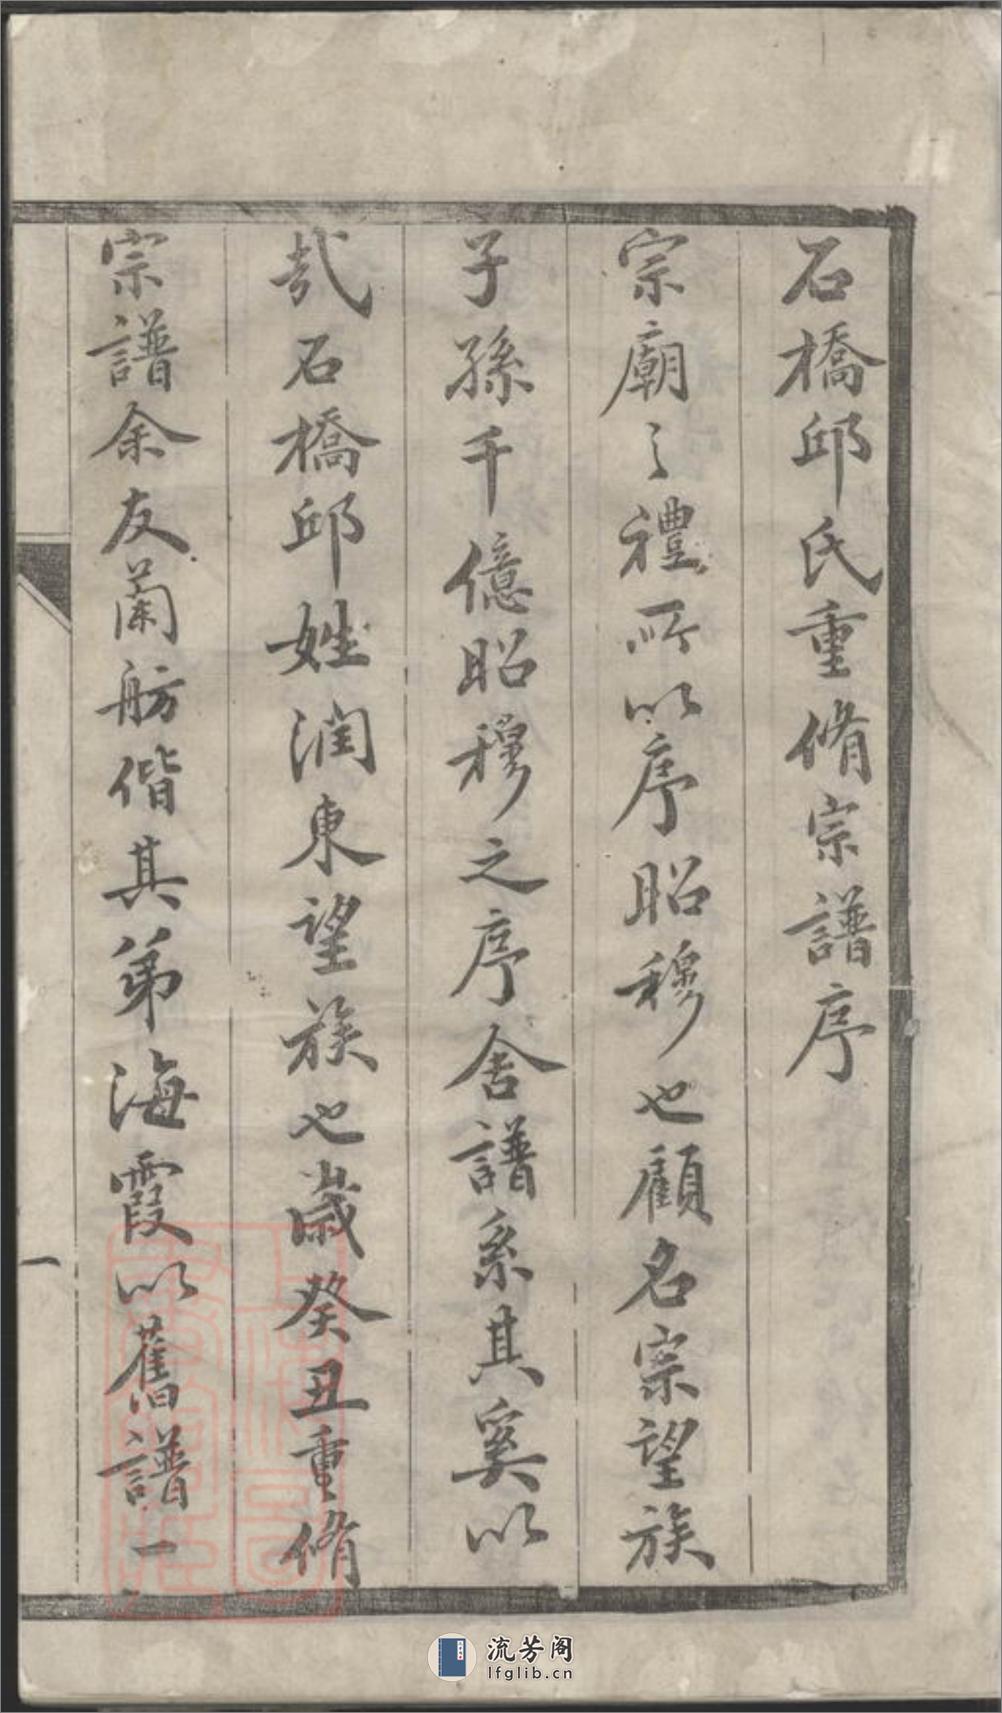 石橋邱氏重脩宗譜序
宗廟之禮所以序昭穆也顧名宗望族
子孫千億昭穆之序舍譜系其奚以
哉石橋邱姓潤東望族也歲癸丑重脩
宗譜余友蘭舫偕其弟海霞以舊譜一
一
流芳阁
lfglib.cn